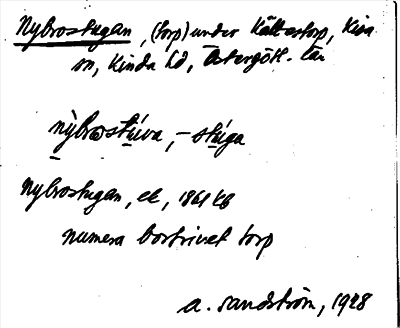 Nybrostugan, (torp) under Källestorp, Kisa
sn, Kinda hd, Östergötl. län
nỳbrostúva, -stúga
Nybrostugan, ek, 1861 kb
numera bortrivet torp
A. Sandström, 1928